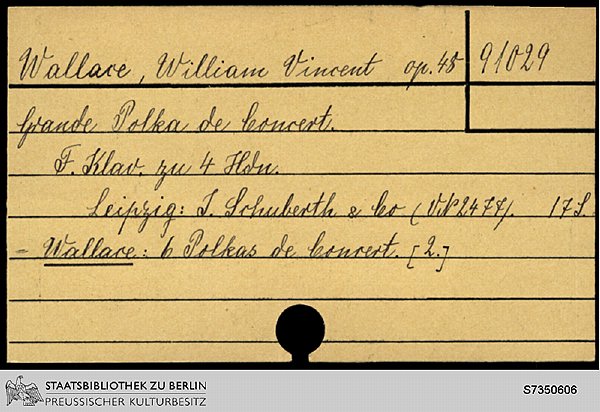 Wallace, William Vincent op. 48 91029
Grande Polka de Concert.
F. Klav. zu 4 Hdn.
Leipzig: J. Schuberth & Co (VN 2477). 17 S.
- Wallace: 6 Polkas de Concert. [2.]
STAATSBIBLIOTHEK ZU BERLIN
PREUSSISCHER KULTURBESITZ
S7350606